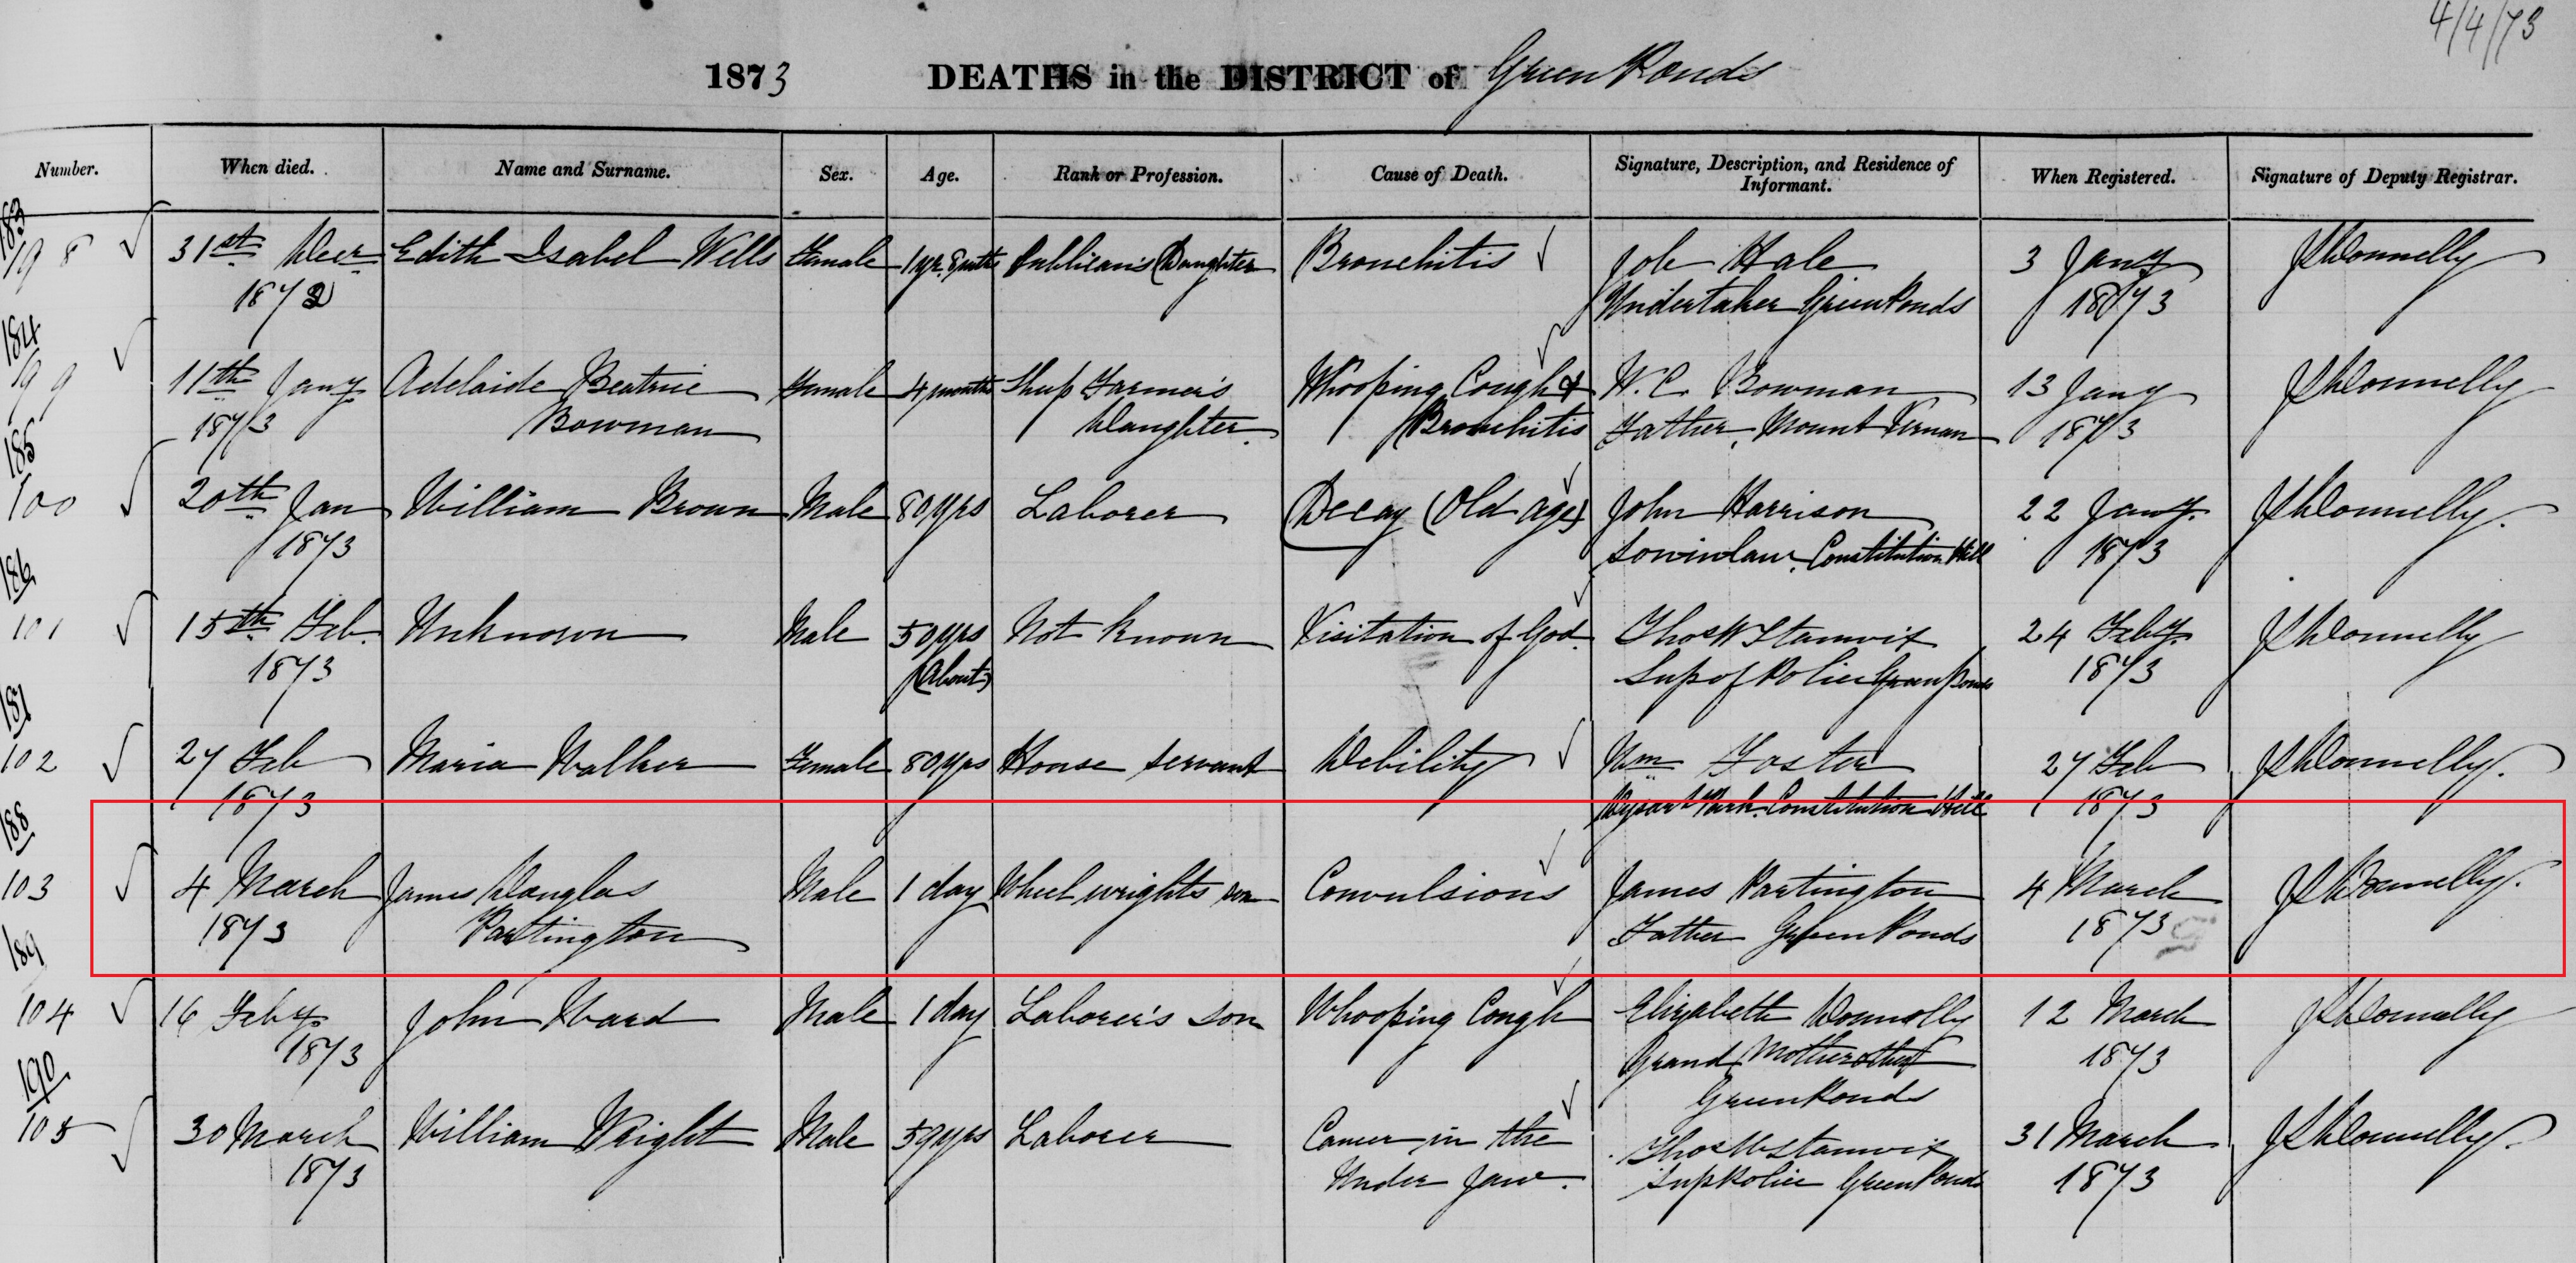 4/4/73
1873 DEATHS in the DISTRICT of Green Ponds
Number. When died. Name and Surname. Sex. Age. Rank or Profession. Cause of Death. Signature, Description, and Residence of Informant. When Registered. Signature of Deputy Registrar.
183
98 31st Decr Edith Isabel Wells Female 1 yr. 8 mths Publican's Daughter Bronchitis Job Hale 3 Jany
1872 Undertaker Green Ponds 1873
184
99 11th Jany Adelaide Beatrice Female 4 months Sheep Farmer's Whooping Cough & W. C. Bowman 13 Jany
1873 Bowman Daughter. Bronchitis Father, Mount Vernan 1873
185
100 20th Jan William Brown Male 80 yrs Laborer Decay (Old age) John Harrison 22 Jany.
1873 Soninlaw, Constitution Hill 1873
186
101 15th Feb. Unknown Male 50 yrs Not Known Visitation of God. Thos W Stanwix 24 Feby.
1873 (About) Sup of Police Green Ponds 1873
187
102 27 Feb Maria Walker Female 80 yrs House Servant Debility Wm Foster 27 Feb
1873 Dysart Park. Constitution Hill 1873
188
103 4 March James Douglas Male 1 day Wheel wrights son Convulsions James Partington 4 March
1873 Partington Father Green Ponds 1873
189
104 16 Feby John Ward Male 1 day Laborer's son Whooping Cough Elizabeth Donnolly 12 March
1873 Grand Mother 1873
Green Ponds
190
105 30 March William Wright Male 59 yrs Laborer Cancer in the Thos W Stanwix 31 March
1873 Under Jaw. Sup Police Green Ponds 1873